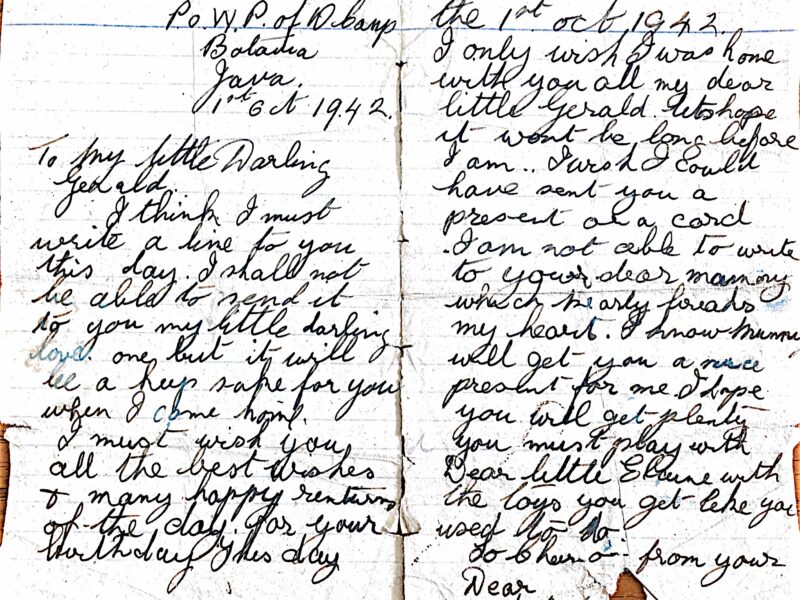 P.o.W.P. of D Camp
Batavia
Java.
1st Oct 1942.
To My little Darling
Gerald.
I think I must
write a line to you
this day. I shall not
be able to send it
to you my little darling
love. one but it will
be a kep safe for you
when I come home.
I must wish you
all the best wishes
& many happy renturns
of the day for your
birthday this day
the 1st oct 1942.
I only wish I was home
with you all my dear
little Gerald. lets hope
it wont be long before
I am.. I wish I could
have sent you a
present or a card
. I am not able to write
to your dear mammy
which nearly breaks
my heart. I know Mummy
will get you a nice
present for me I hope
you will get plenty
you must play with
Dear little Elaine with
the toys you get like you
used to do.
So Cheero from your
Dear